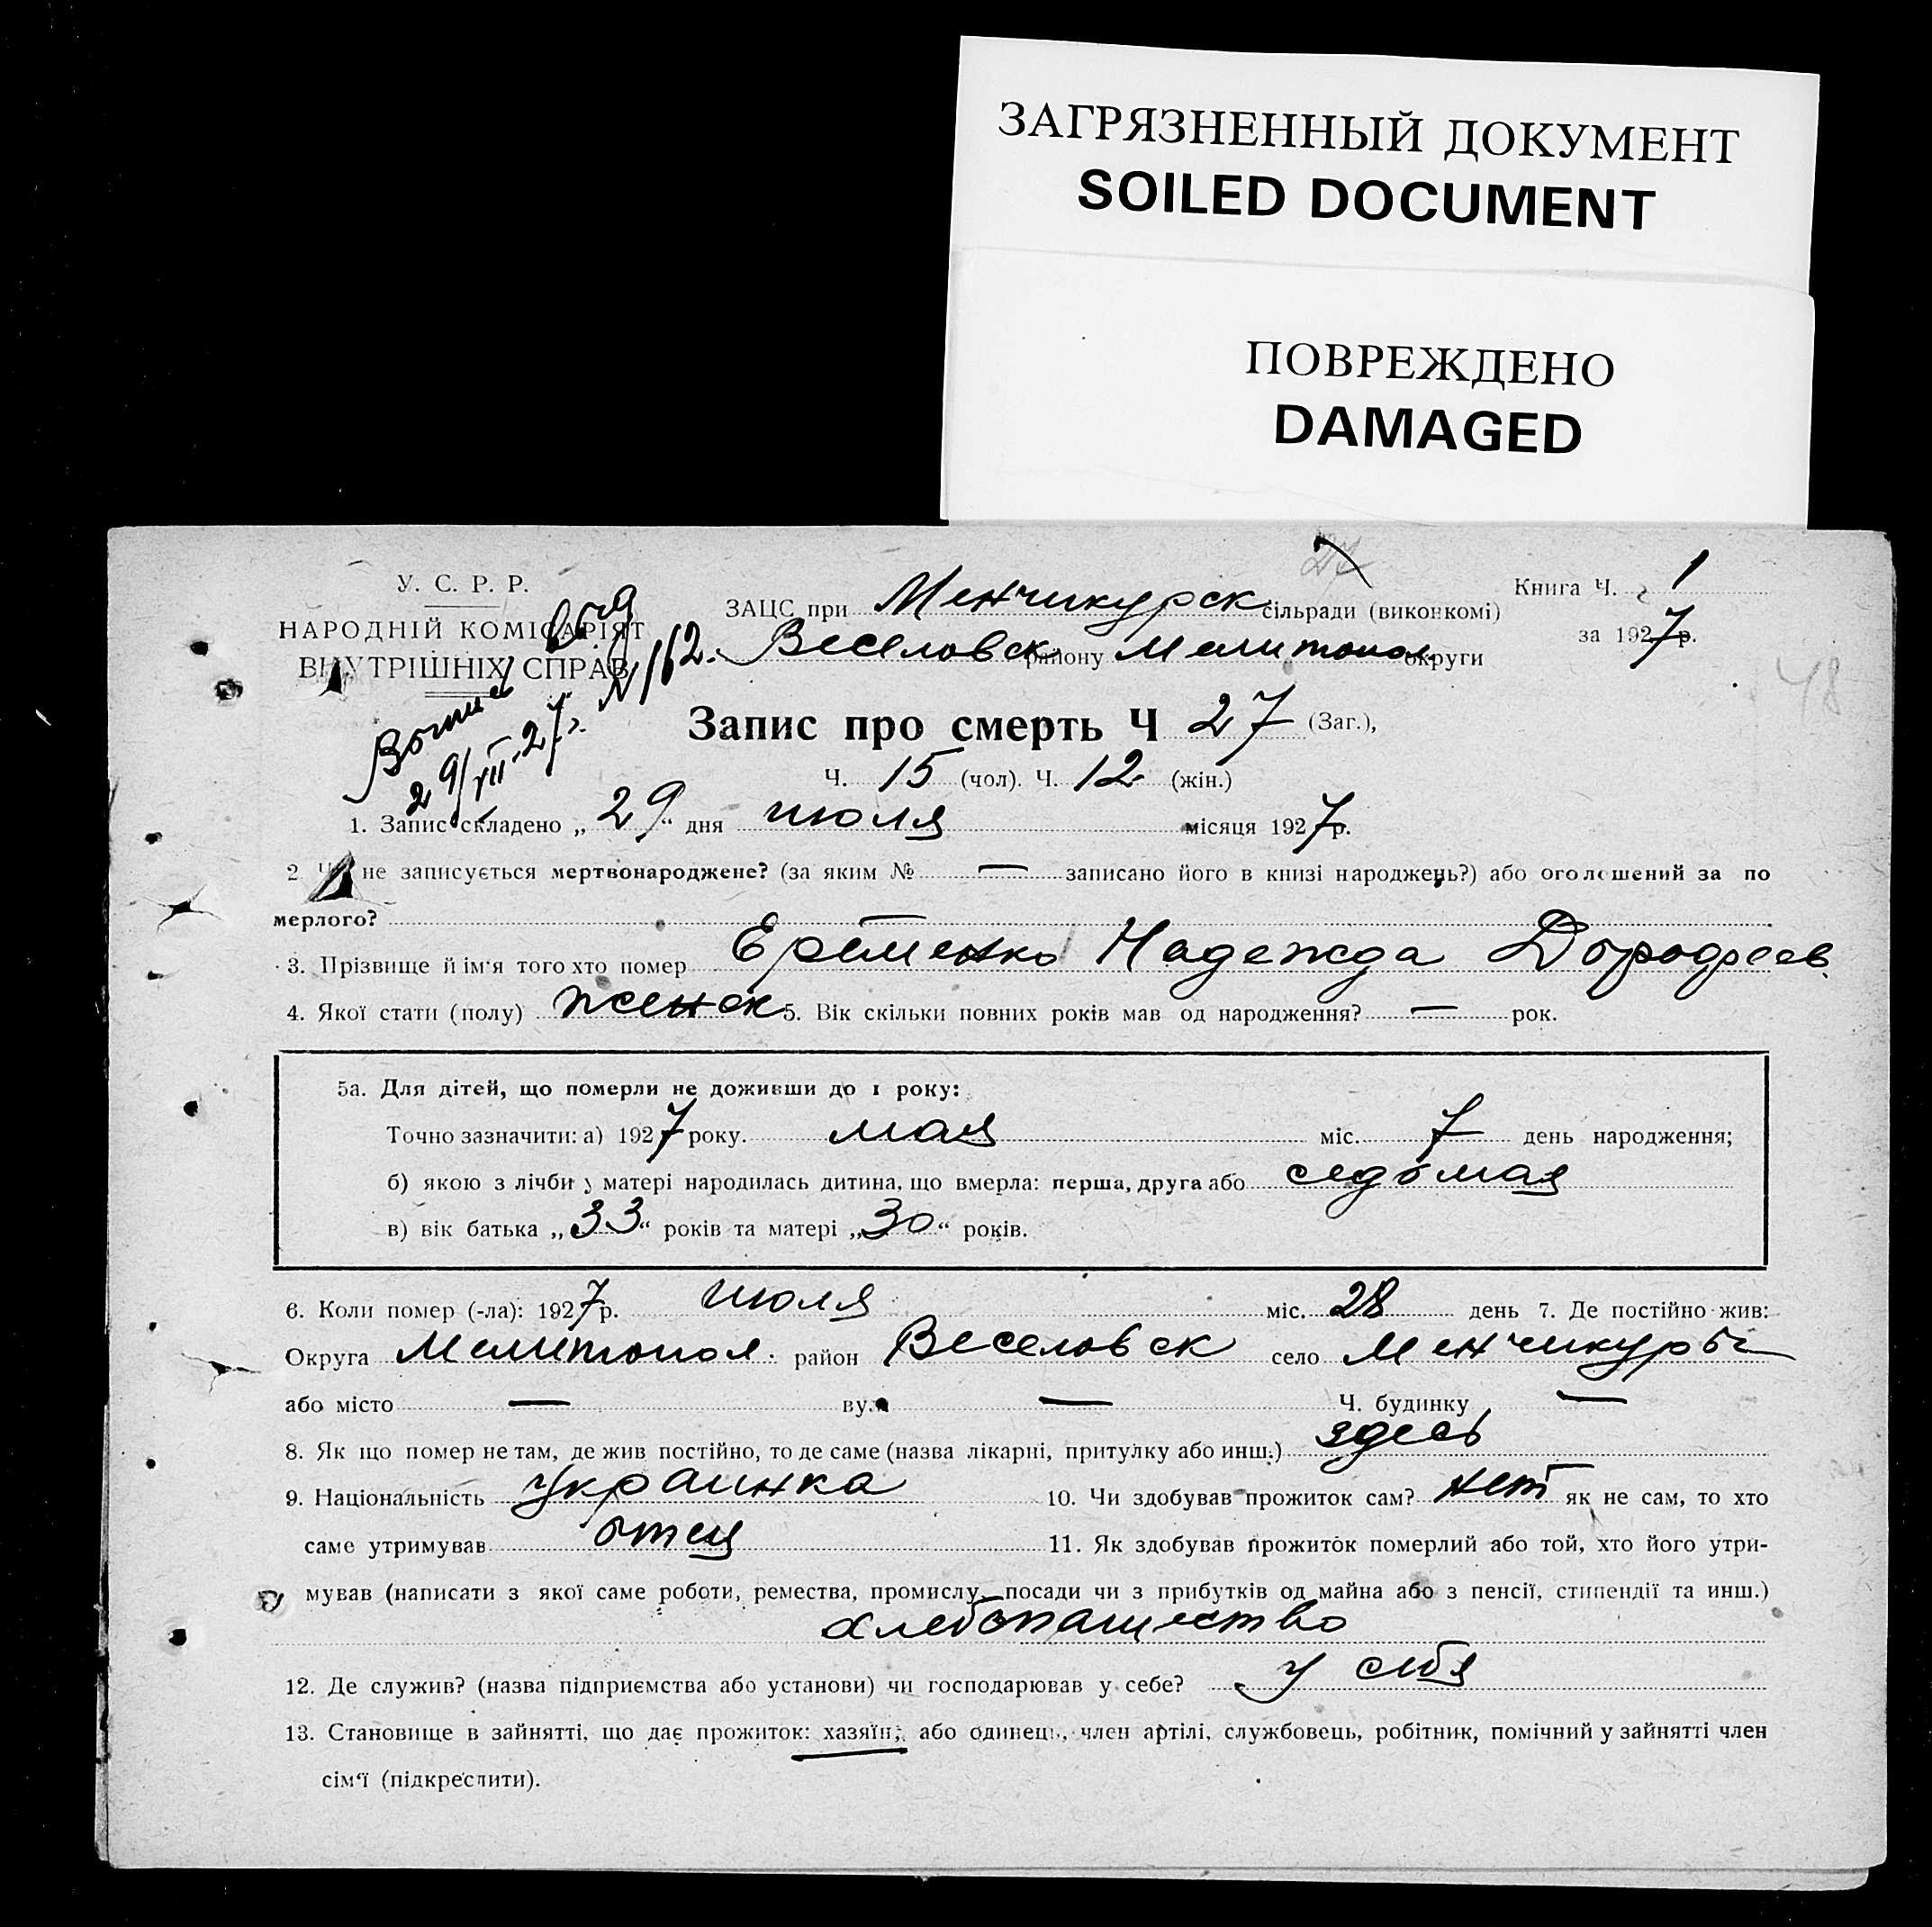 ЗАГРЯЗНЕННЫЙ ДОКУМЕНТ
SOILED DOCUMENT
ПОВРЕЖДЕНО
DAMAGED
27
У. С. Р. Р.
НАРОДНІЙ КОМІСАРІЯТ
ВНУТРІШНІХ СПРАВ
29/VII-27 г. № 162.
ЗАЦС при Менчикурск сільради (виконкомі)
Веселовск району Мелитопол округи
Книга Ч. 1
за 1927 р.
48
Запис про смерть Ч 27 (Заг.),
Ч. 15 (чол). Ч. 12 (жін.)
1. Запис складено „ 29 “ дня июля місяця 1927 р.
2 Чи не записується мертвонароджене? (за яким № — записано його в книзі народжень?) або оголошений за по
мерлого?
3. Прізвище й ім'я того хто помер Ерёменко Надежда Дорофеев.
4. Якої стати (полу) женск 5. Вік скільки повних років мав од народження? — рок.
5а. Для дітей, що померли не доживши до 1 року:
Точно зазначити: а) 1927 року. мая міс. 7 день народження;
б) якою з лічби у матері народилась дитина, що вмерла: перша, друга або седьмая
в) вік батька „ 33 “ років та матері „ 30 “ років.
6. Коли помер (-ла): 1927 р. июля міс. 28 день 7. Де постійно жив:
Округа Мелитопол. район Веселовск село Менчикуры
або місто — вул. — Ч. будинку —
8. Як що помер не там, де жив постійно, то де саме (назва лікарні, притулку або инш.) здесь
9. Національність украинка 10. Чи здобував прожиток сам? нет як не сам, то хто
саме утримував отец 11. Як здобував прожиток померлий або той, хто його утри-
мував (написати з якої саме роботи, ремества, промислу, посади чи з прибутків од майна або з пенсії, стипендії та инш.)
хлебопашество
12. Де служив? (назва підприємства або установи) чи господарював у себе? у себя
13. Становище в зайнятті, що дає прожиток: хазяїн, або одинець, член артілі, службовець, робітник, помічний у зайнятті член
сім'ї (підкреслити).